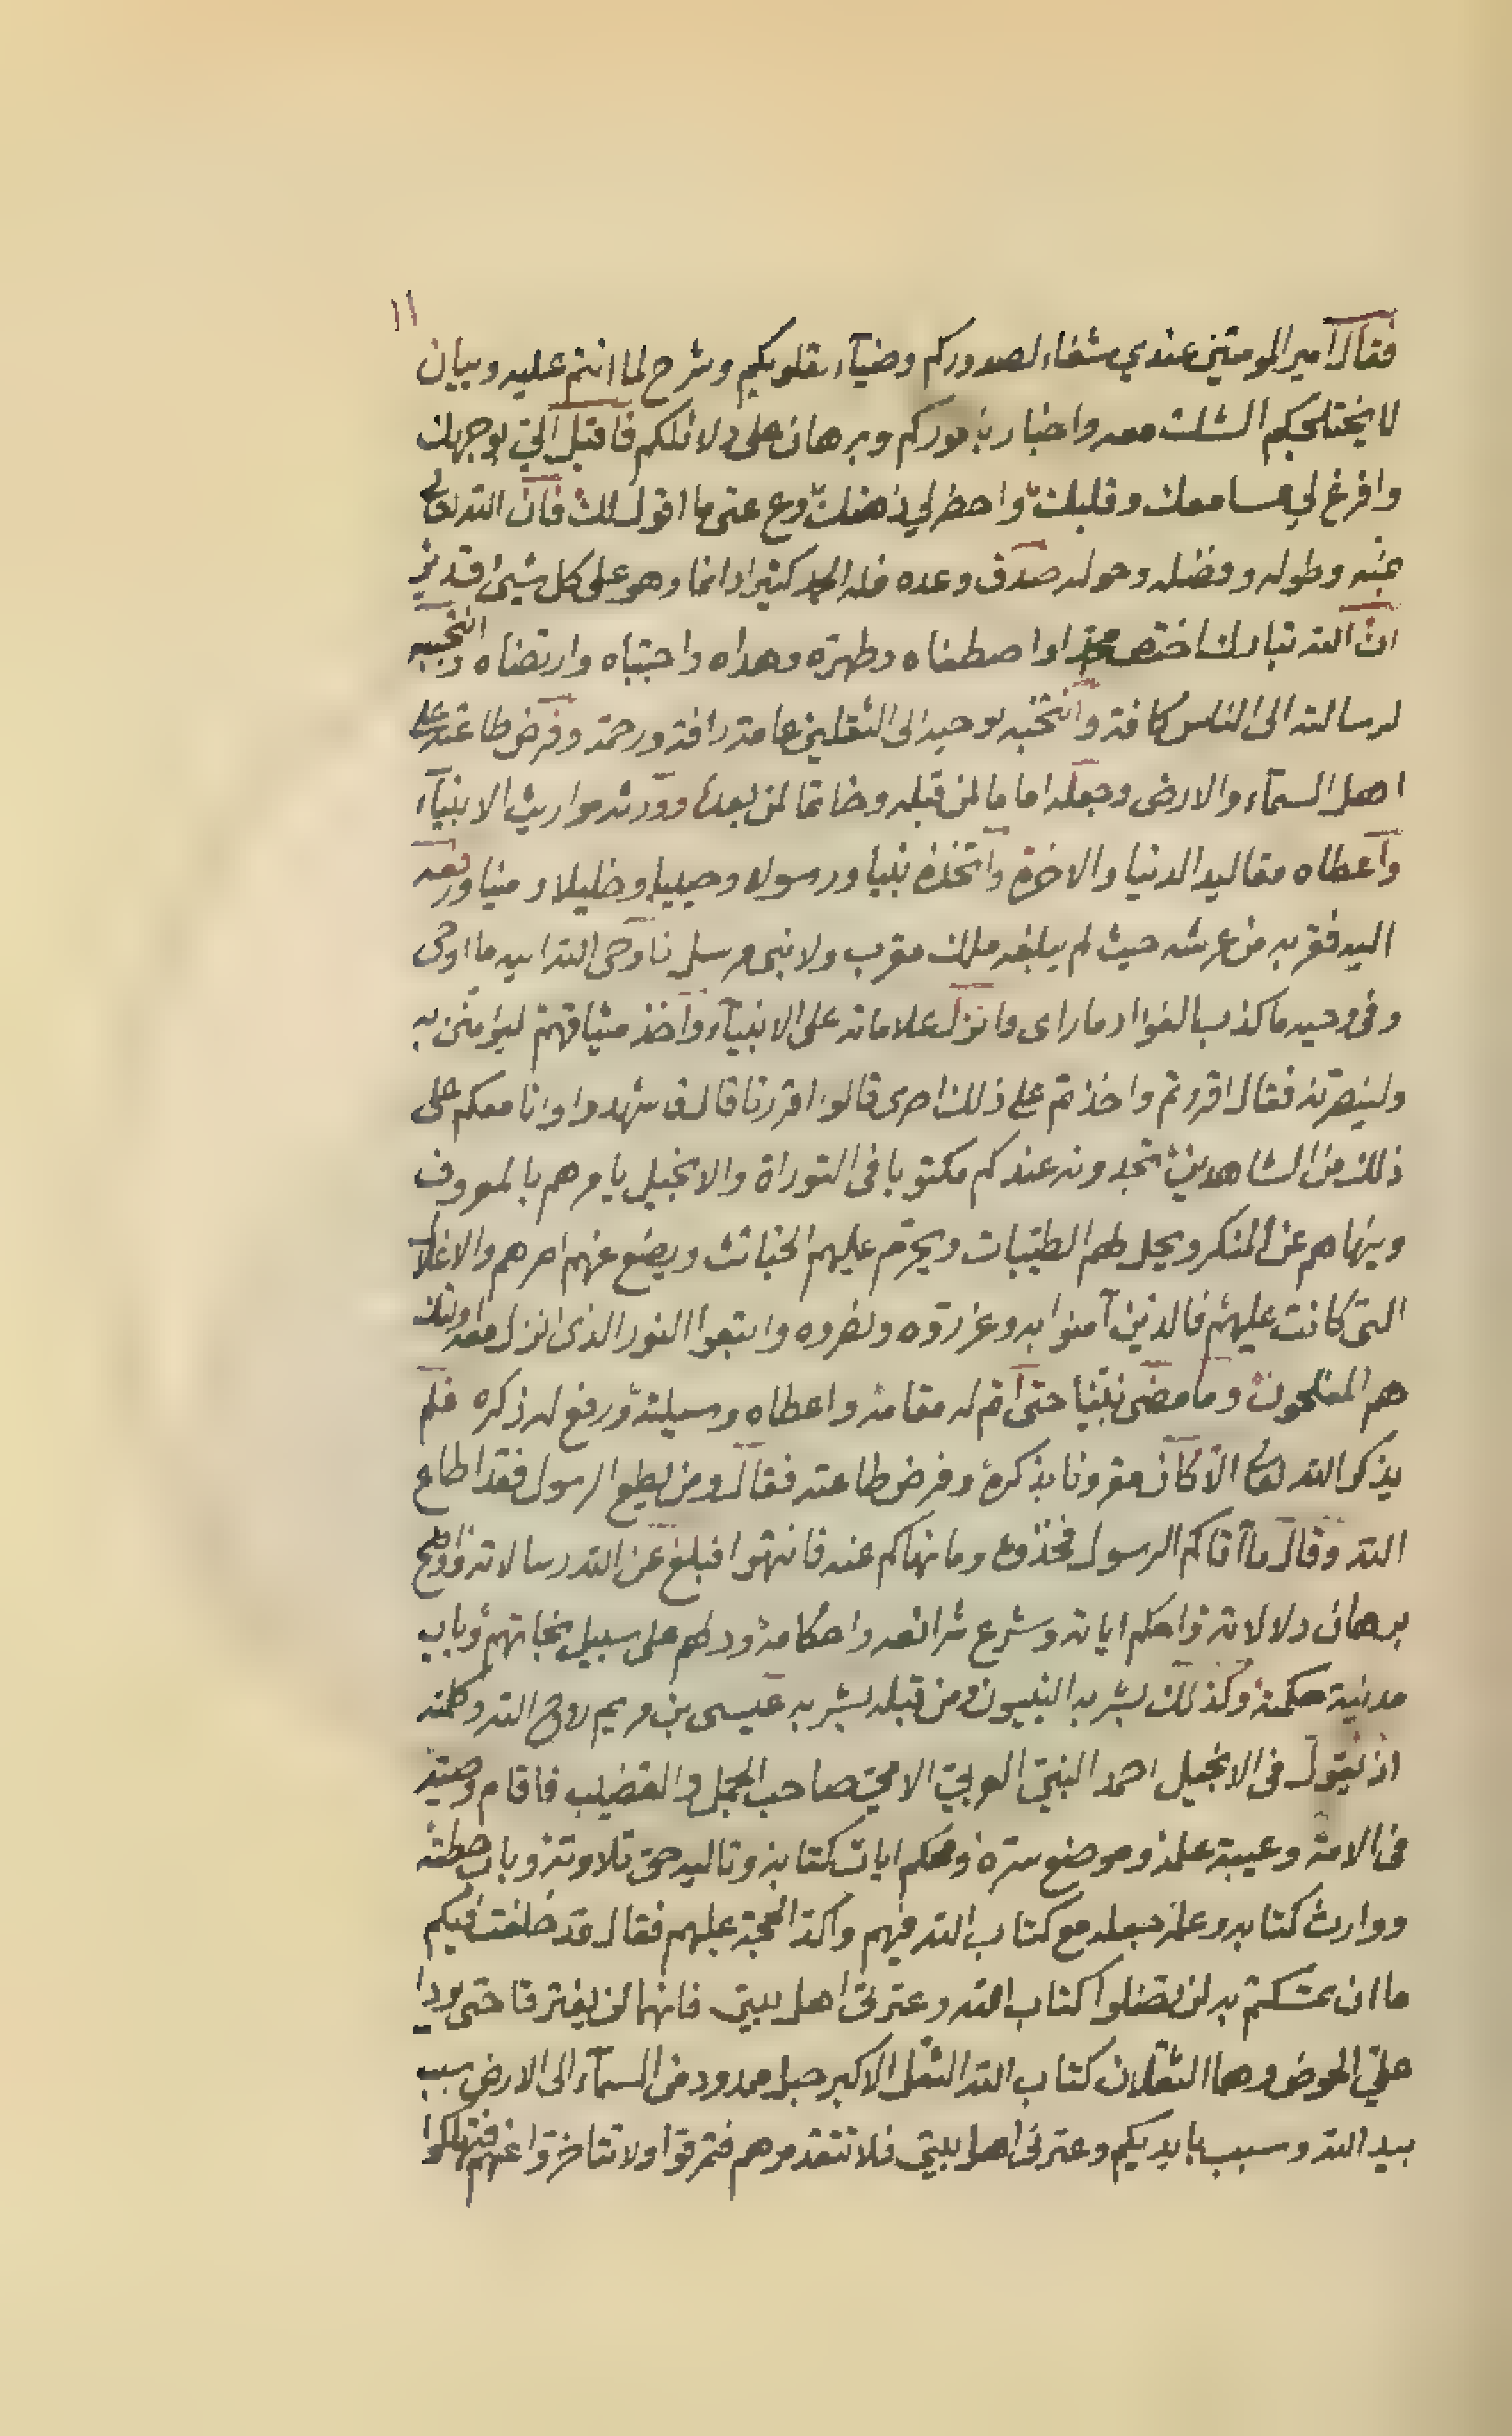 ١١
فقال امير المومنين عندي شفاء لصدوركم وضيآء لقلوبكم وشرح لما انتم عليه وبيان
لا يختلجكم الشك معه واخبار باموركم وبرهان على دلائلكم فاقبل اليّ بوجهك
وافرغ لي مسامعك وقلبك واحضر لي ذهنك وع عنى ما اقول لك فان الله تعالى
بمنه وطوله وفضله وحوله صدق وعده فله الحمد كثيرا دائما وهو على كل شيئ قدير
ان الله تبارك اختص محمدا واصطفاه وطهره وهداه واجتباه وارتضاه وانتجبه
لرسالته الى الناس كافة وانتخبه لوحيه الى الثقلين عامة رافة ورحمة وفرض طاعته على
اهل السمآء والارض وجعله اماما لمن قبله وخاتما لمن بعده وورثه مواريث الانبيآء
واعطاه مقاليد الدنيا والاخرة واتخذه نبيا ورسولا وحبيبا وخليلا ورفعه
اليه فقربه من عرشه حيث لم يبلغه ملك مقرب ولا نبى مرسل فاوحى الله اليه ما اوحى
وفى وحيه ما كذب الفواد ما راى وما نزل علاماته على الانبيآء واخذ ميثاقهم ليؤمنن به
ولينصرنه فقال اقررتم واخذتم على ذلك اصرى قالوا اقررنا قال فاشهدوا وانا معكم على
ذلك من الشاهدين تجدونه عندكم مكتوبا فى التوراة والانجيل يامرهم بالمعروف
وينهاهم عن المنكر ويحل لهم الطيبات ويحرم عليهم الخبائث ويضع عنهم اصرهم والاغلال
التى كانت عليهم فالذين آمنوا به وعزروه ونصروه واتبعوا النور الذى انزل معه اولئك
هم المفلحون وما مضى نبينا حتى اتم له مقامه واعطاه وسيلته ورفع له ذكره فلم
يذكر الله تعالى الا كان مقرونا بذكره وفرض طاعته فقال ومن يطع الرسول فقد اطاع
الله وقال ما آتاكم الرسول فخذوه وما نهاكم عنه فانتهوا فبلغ عن الله رسالاته واوضح
برهان دلالاته واحكم اياته وشرع شرائعه واحكامه ودلهم على سبيل نجاتهم وباب
مدينة حكمته وكذلك بشر به النبيون ومن قبله بشر به عيسى بن مريم روح الله وكلمته
اذ يقول فى الانجيل احمد النبيّ العربيّ الاميّ صاحب الجمل والقضيب فاقام وصيته
فى الامة وعيبة علمه وموضع سره ومحكم ايات كتابه وتاليه حق تلاوته وباب حطته
ووارث كتابه وعلمه جعله مع كتاب الله فيهم واكد الحجة عليهم فقال قد خلفت فيكم
ما ان تمسكتم به لن تضلوا كتاب الله وعترتى اهل بيتى فانهما لن يفترقا حتى يردا
عليّ الحوض وهما الثقلان كتاب الله الثقل الاكبر حبل ممدود من السمآء الى الارض سبب
بيد الله وسبب بايديكم وعترتى اهل بيتى فلا تتقدموهم فتمرقوا ولا تتاخروا عنهم فتهلكوا